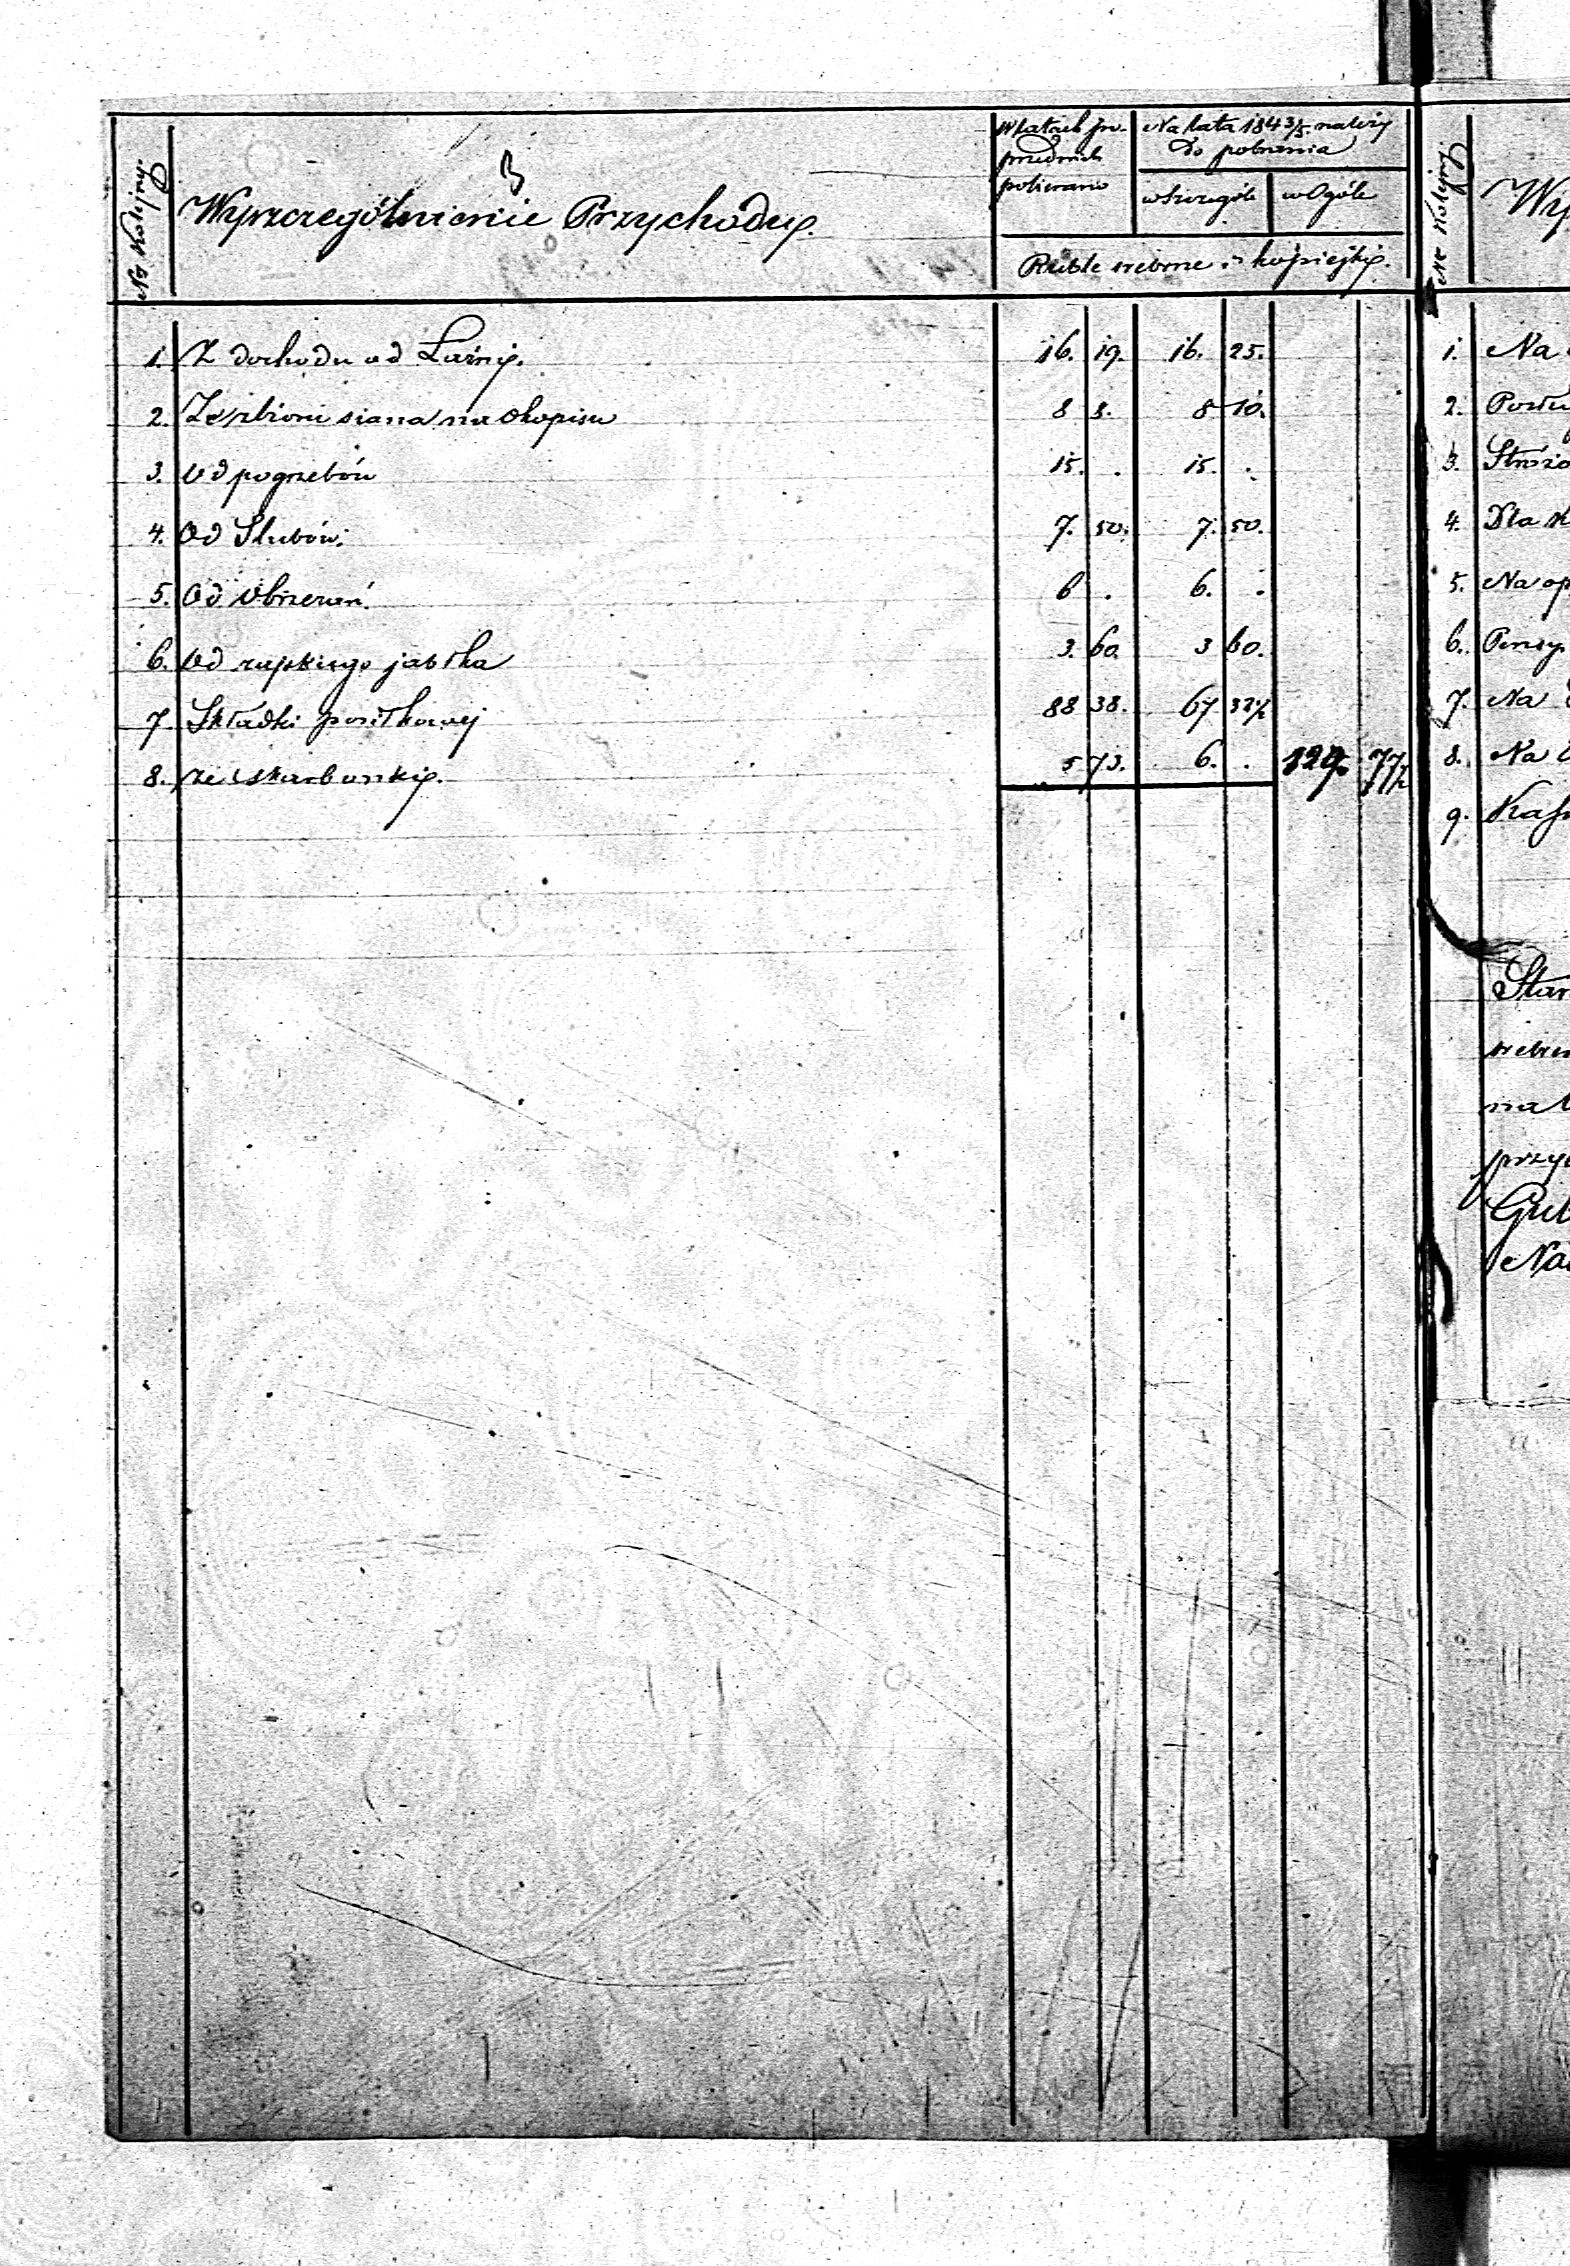 B
No Kolejny.
Wyszczególnienie Przychodu.
W latach po-
przednich
pobierano
Na lata 1843/5 należy
do pobrania
w Szczególe
w Ogóle
Ruble srebrne i kopiejki.
1. Z dochodu od Łaźni. 16. 19. 16. 25.
2. Ze zbioru siana na Okopisku 8 3. 8 10.
3. Od pogrzebów 15. . 15. .
4. Od Slubów. 7. 50. 7. 50.
5. Od Obrzezań. 6 . 6. .
6. Od rayskiego jabłka 3. 60. 3 60.
7. Składki posiłkowej 88 38. 67 32½
8. ze skarbonki. 5 73. 6. . 129. 77½
No Kolejny
Wy
1. Na
2.
3. Stróżo
4. Dla
5. Na op
6. Pensy
7. Na
8. Na
9.
Star
srebr
na
przy
Gub
Na